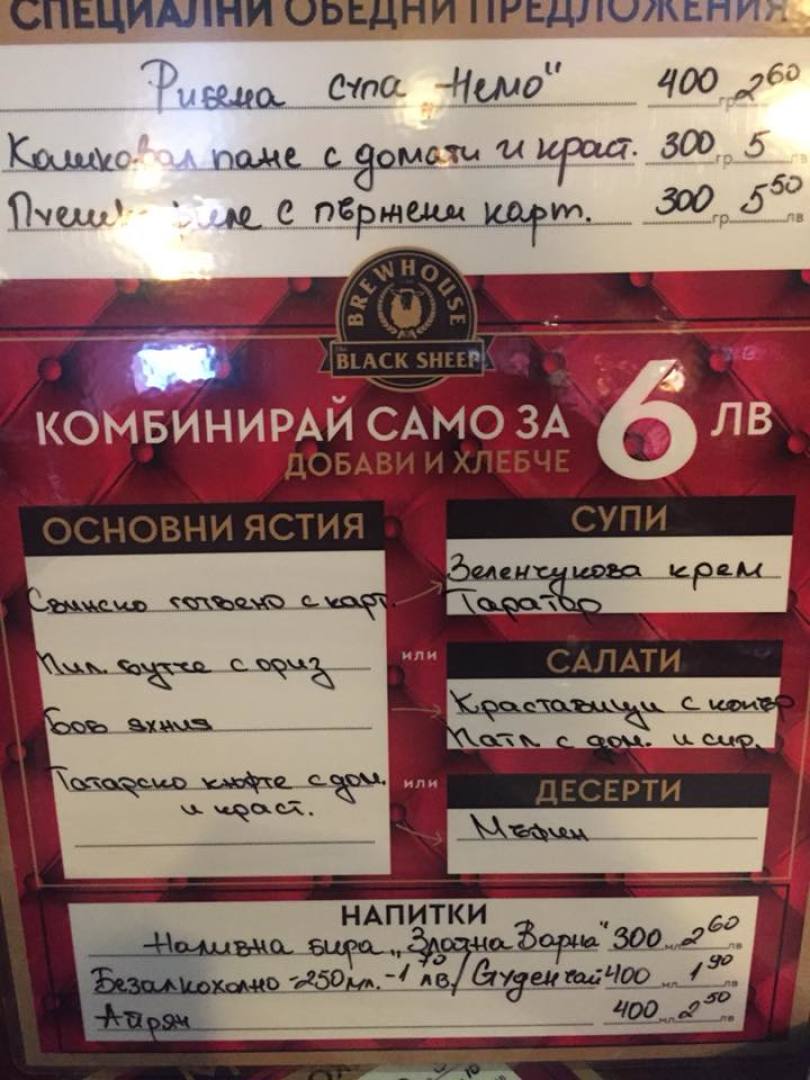 СПЕЦИАЛНИ ОБЕДНИ ПРЕДЛОЖЕНИЯ
Рибена супа „Немо" 400 гр 2 60
Кашкавал пане с домати и краст. 300 гр 5 лв
Пуешко филе с пържени карт. 300 гр 5 50 лв
BREWHOUSE
BLACK SHEEP
КОМБИНИРАЙ САМО ЗА 6 ЛВ
ДОБАВИ И ХЛЕБЧЕ
ОСНОВНИ ЯСТИЯ
Свинско готвено с карт.
Пил. бутче с ориз
Боб яхния
Татарско кюфте с дом.
и краст.
СУПИ
Зеленчукова крем
Таратор
или
САЛАТИ
Краставици с копър
Патл с дом. и сир.
или
ДЕСЕРТИ
Мъфин
НАПИТКИ
Наливна бира „Златна Варна" 300 мл 2 60 лв
Безалкохолно -250мл. -1 70 лв./ Студен чай 400 мл 1 90 лв
Айрян 400 мл 2 50 лв